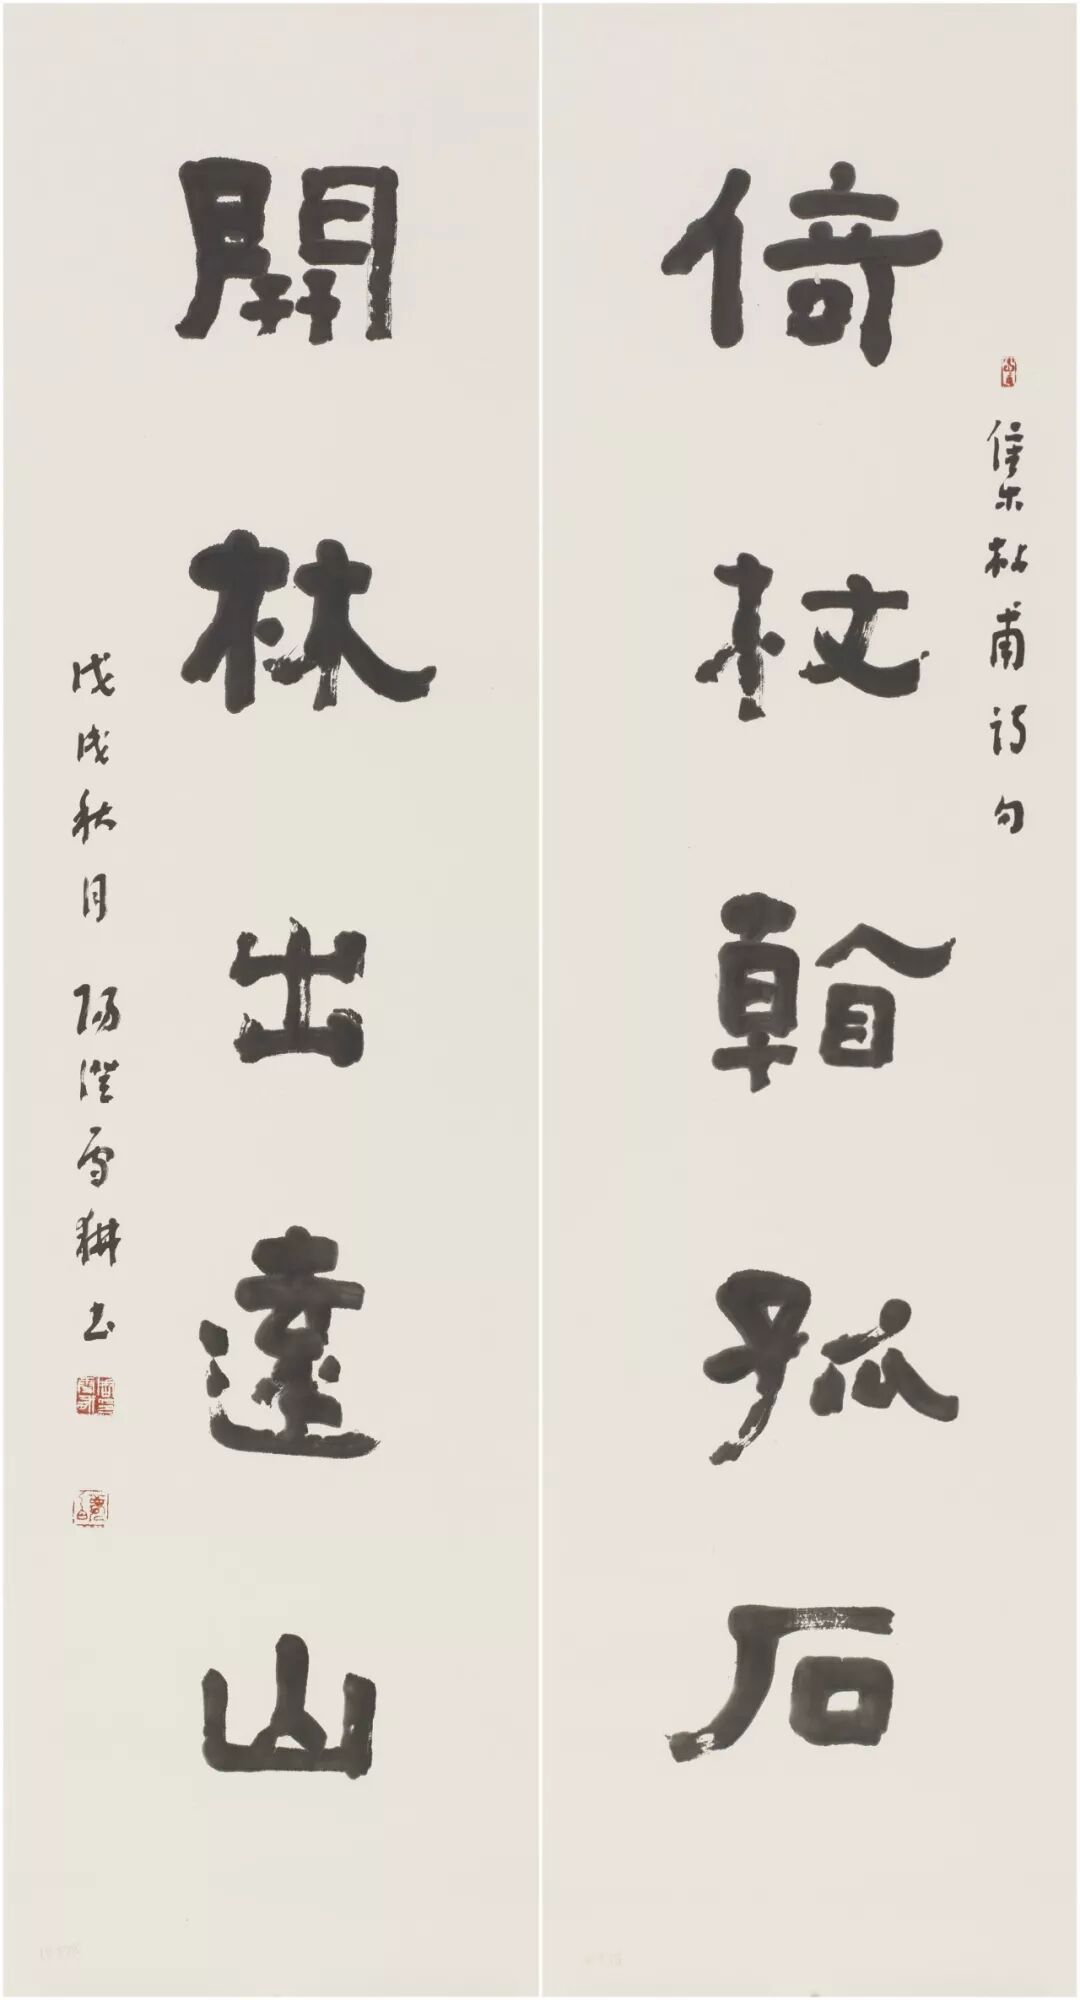 倚杖看孤石
集杜甫詩句
開林出遠山
戊戌秋月 陽澄雪耕书